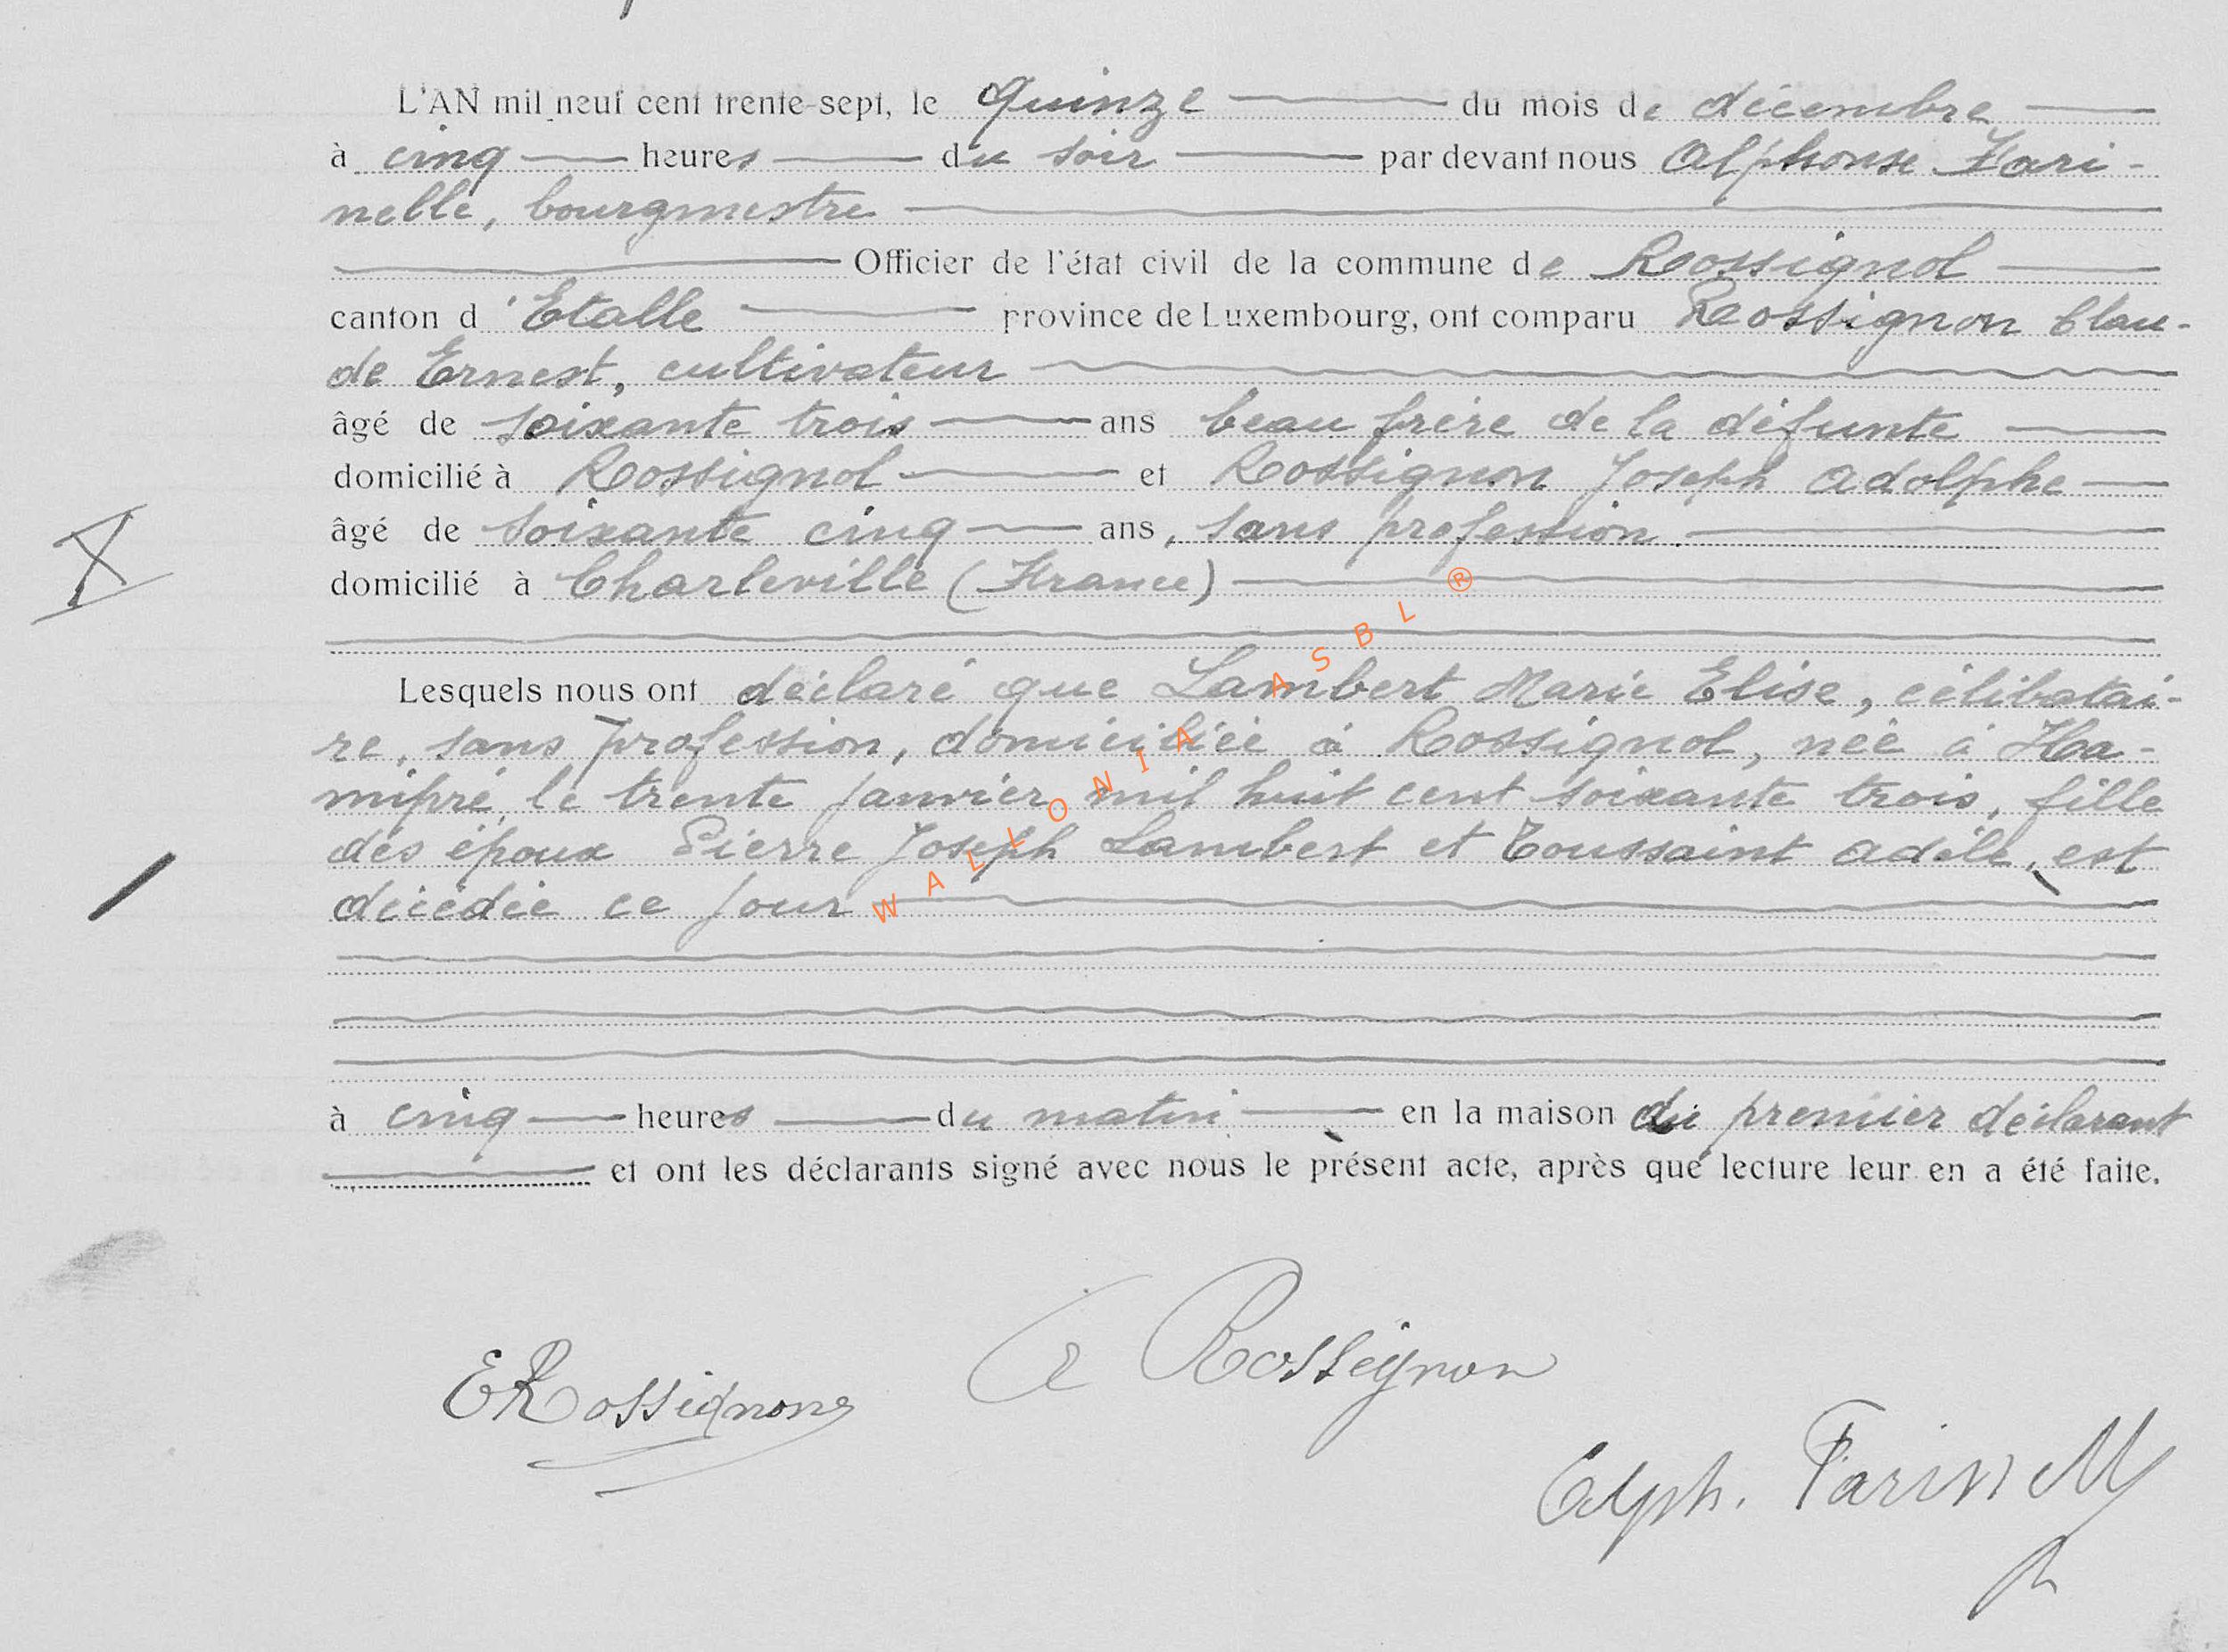 L'AN mil neuf cent trente-sept, le quinze du mois de décembre
à cinq heures du soir par devant nous Alphonse Fari-
nelle, bourgmestre
Officier de l'état civil de la commune de Rossignol
canton d'Etalle province de Luxembourg, ont comparu Rossignon Clau-
de Ernest, cultivateur
âgé de soixante trois ans beau frère de la défunte
domicilié à Rossignol et Rossignon Joseph Adolphe
âgé de soixante cinq ans, sans profession
domicilié à Charleville (France)
Lesquels nous ont déclaré que Lambert Marie Elise, célibatai-
re, sans profession, domiciliée à Rossignol, née à Ha-
mipré, le trente janvier mil huit cent soixante trois, fille
des époux Pierre Joseph Lambert et Toussaint Adèle, est
décédée ce jour
à cinq heures du matin en la maison du premier déclarant
et ont les déclarants signé avec nous le présent acte, après que lecture leur en a été faite.
E Rossignon
Rossignon
Alph. Farinelle
WALLONIA ASBL ®